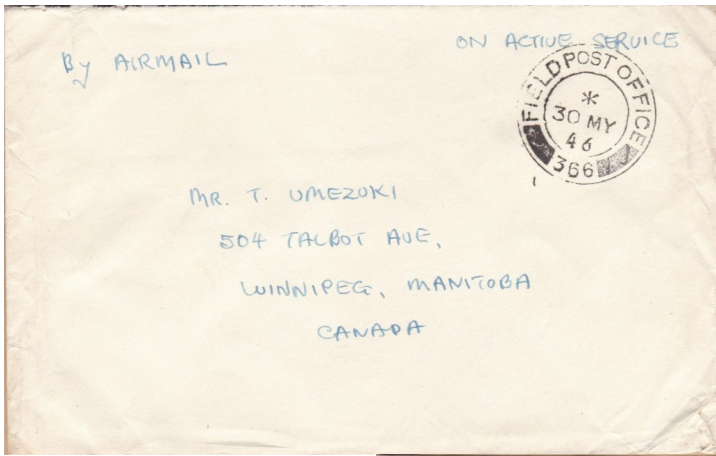 By AIRMAIL
ON ACTIVE SERVICE
FIELD POST OFFICE
*
30 MY
46
366
MR. T. UMEZUKI
504 TALBOT AVE,
WINNIPEG, MANITOBA
CANADA